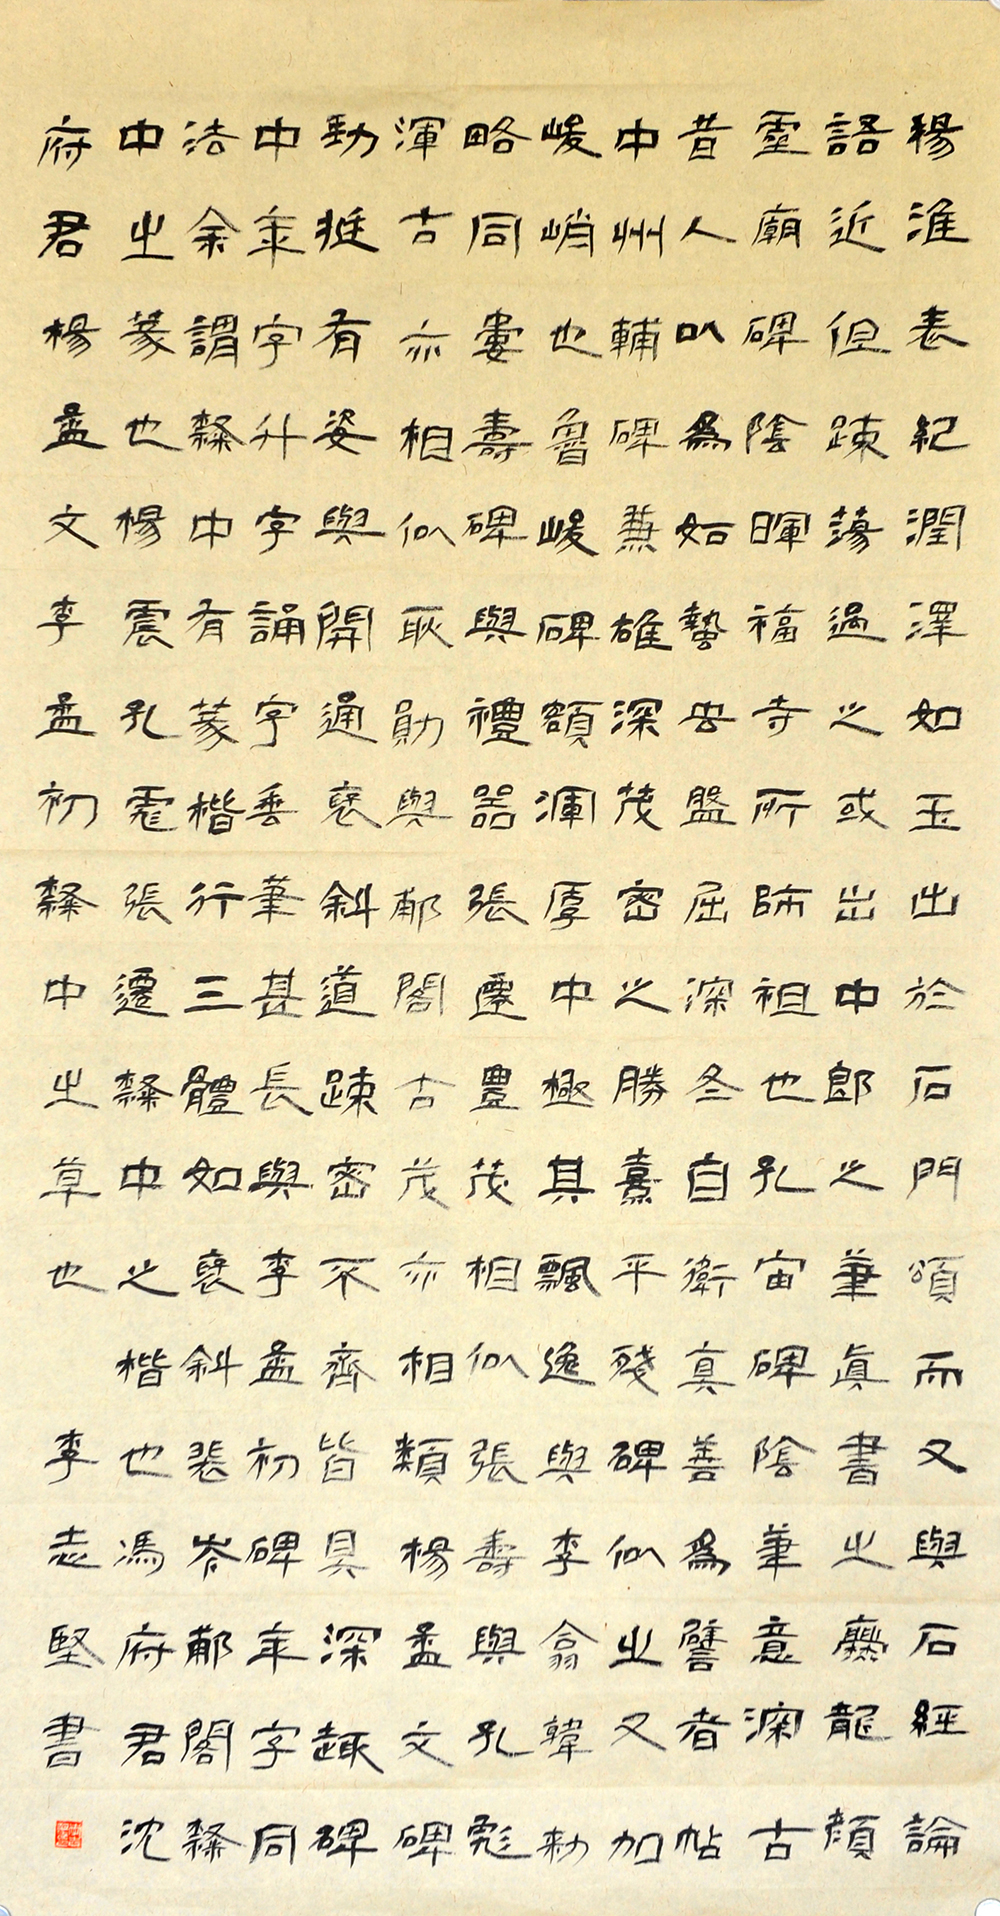 楊淮表紀潤澤如玉出於石門頌而又與石經論
語近但踈蕩過之或出中郎之筆真書之爨龍顏
靈廟碑陰暉福寺所師祖也孔宙碑陰筆意深古
昔人以為如蟄虫盤屈深冬自衛真善為譬者帖
中州輔碑兼雄深茂密之勝熹平殘碑似之又加
峻峭也魯峻碑額渾厚中極其飄逸與李翕韓勑
略同婁壽碑與禮器張遷豊茂相似張壽與孔彪
渾古亦相似耿勛與郙閣古茂亦相類楊孟文碑
勁挺有姿與開通褒斜道踈密不齊皆具深趣碑
中年字升字誦字垂筆甚長與李孟初碑年字同
法余謂隸中有篆楷行三體如褒斜裴岑郙閣隸
中之篆也楊震孔彪張遷隸中之楷也馮府君沈
府君楊孟文李孟初隸中之草也 李志堅書